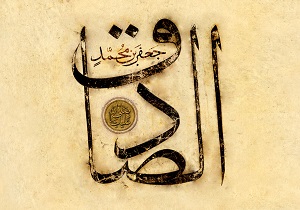 جعفر بن محمد
الصادق